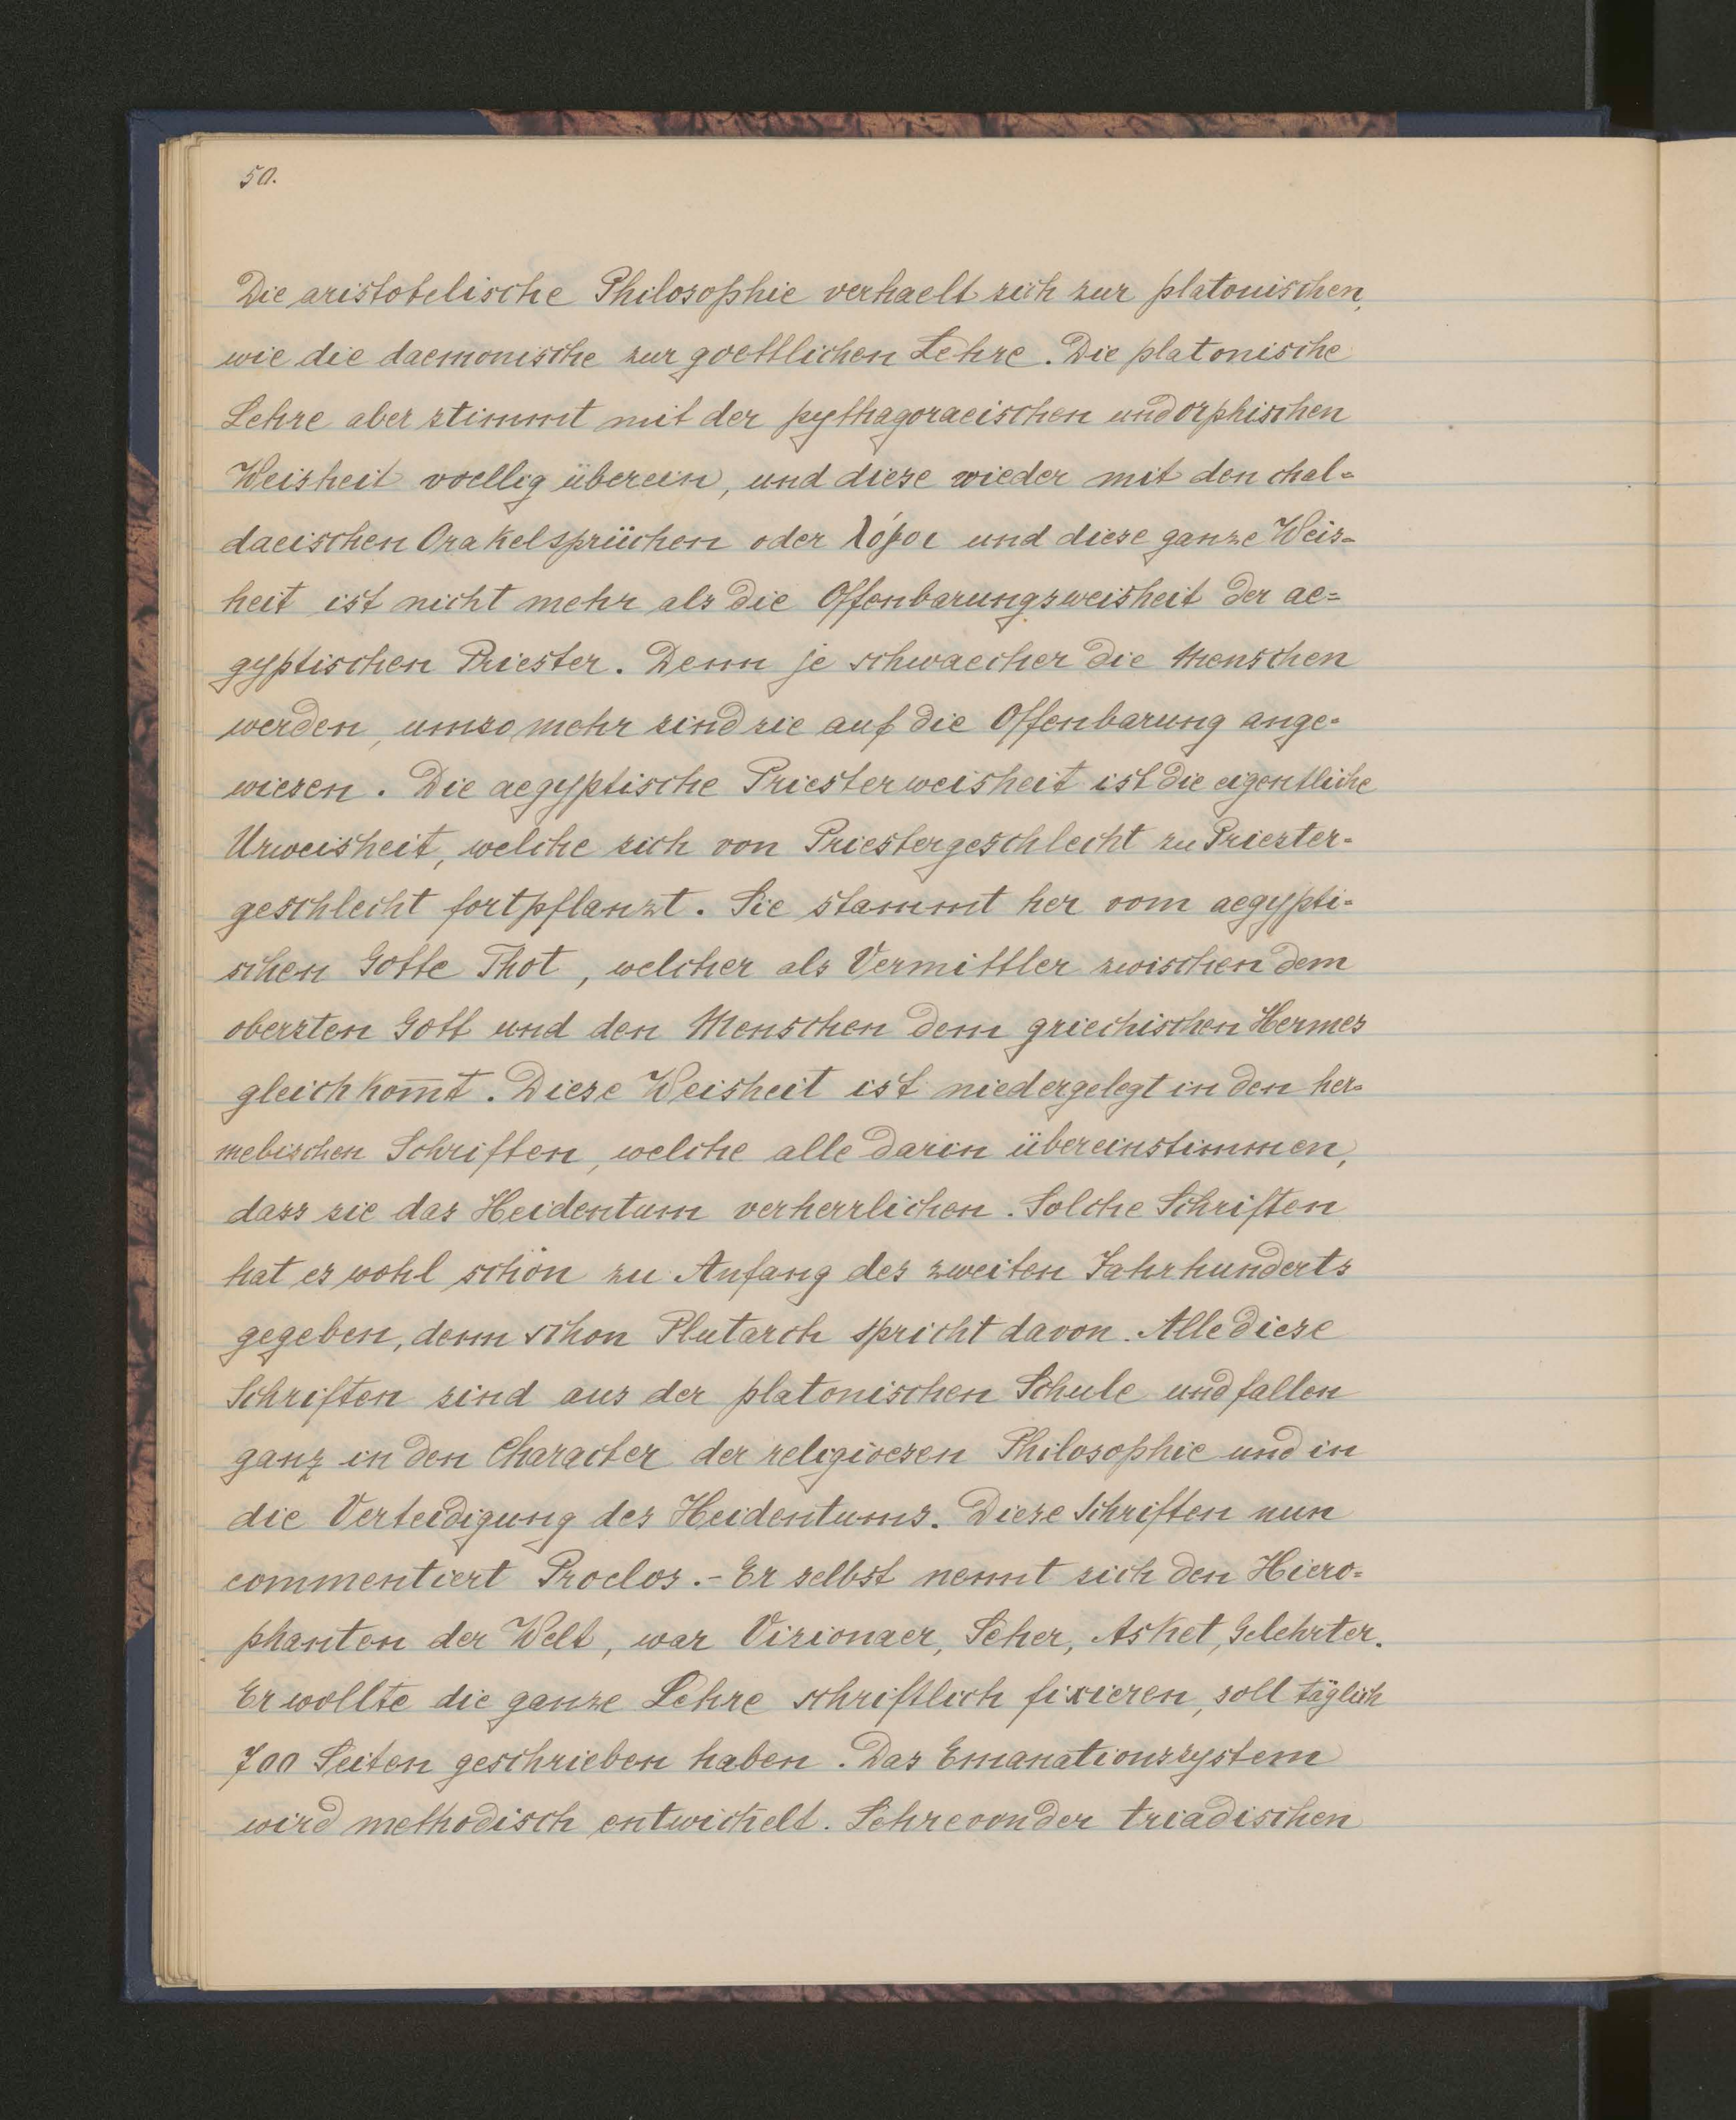 50.
Die aristotelische Philosophie verhaelt sich zur platonischen,
wie die daemonische zur goettlichen Lehre. Die platonische
Lehre aber stimmt mit der pythagoraeischen und orphischen
Weisheit voellig überein, und diese wieder mit den chal=
daeischen Orakelsprüchen oder λόγοι und diese ganze Weis=
heit ist nicht mehr als die Offenbarungsweisheit der ae=
gyptischen Priester. Denn je schwaecher die Menschen
werden, umso mehr sind sie auf die Offenbarung ange=
wiesen. Die aegyptische Priesterweisheit ist die eigentliche
Urweisheit, welche sich von Priestergeschlecht zu Priester=
geschlecht fortpflanzt. Sie stammt her vom aegypti=
schen Gotte Thot, welcher als Vermittler zwischen dem
obersten Gott und den Menschen dem griechischen Hermes
gleichkom̅t. Diese Weisheit ist niedergelegt in den her=
metischen Schriften, welche alle darin übereinstimmen,
dass sie das Heidentum verherrlichen. Solche Schriften
hat es wohl schon zu Anfang des zweiten Jahrhunderts
gegeben, denn schon Plutarch spricht davon. Alle diese
Schriften sind aus der platonischen Schule und fallen
ganz in den Character der religioesen Philosophie und in
die Verteidigung des Heidentums. Diese Schriften nun
commentiert Proclos. - Er selbst nennt sich den Hiero=
phanten der Welt, war Visionaer, Seher, Asket, Gelehrter.
Er wollte die ganze Lehre schriftlich fixieren, soll täglich
700 Seiten geschrieben haben. Das Emanationssystem
wird methodisch entwickelt. Lehre von der triadischen